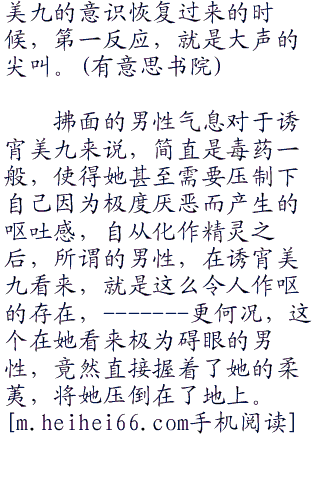 美九的意识恢复过来的时
候，第一反应，就是大声的
尖叫。(有意思书院)
拂面的男性气息对于诱
宵美九来说，简直是毒药一
般，使得她甚至需要压制下
自己因为极度厌恶而产生的
呕吐感，自从化作精灵之
后，所谓的男性，在诱宵美
九看来，就是这么令人作呕
的存在，-------更何况，这
个在她看来极为碍眼的男
性，竟然直接握着了她的柔
荑，将她压倒在了地上。
[m.heihei66.com手机阅读]